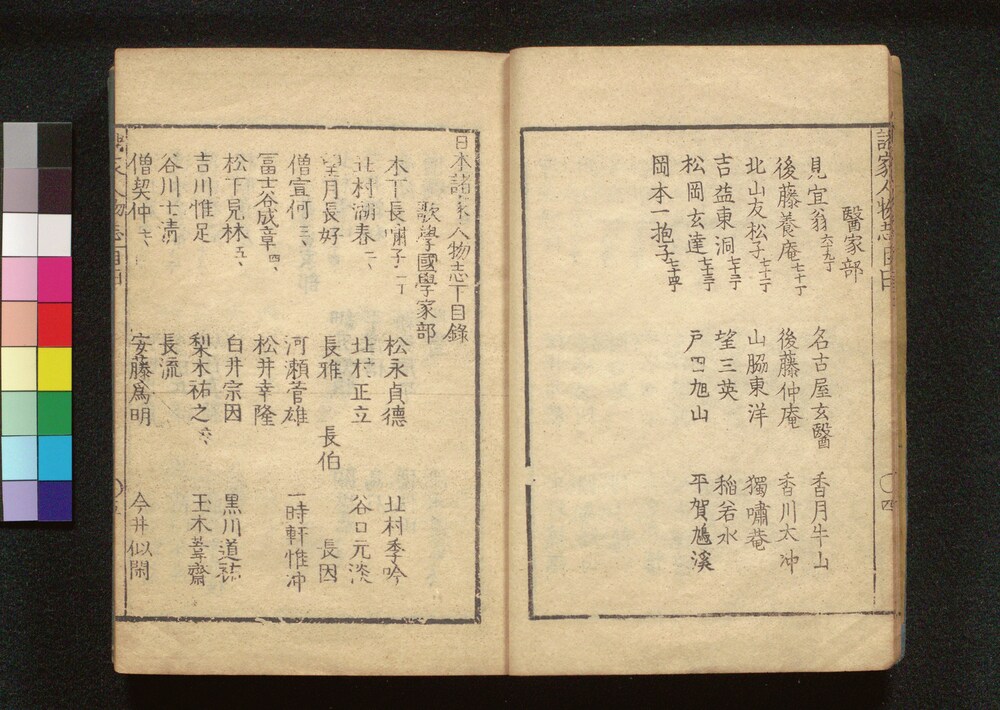 醫家部
見宜翁 六十九丁 名古屋玄醫 香月牛山
後藤養庵 七十丁 後藤仲庵 香川太冲
北山友松子 七十一丁 山脇東洋 獨嘯菴
吉益東洞 七十二丁 望三英 稲若水
松岡玄達 七十三丁 戸田旭山 平賀鳩溪
岡本一抱子 七十四丁
日本諸家人物志下目錄
歌學國學家部
木下長嘯子 一丁 松永貞德 北村季吟
北村湖春 二 北村正立 谷口元淡
望月長好 長雅 長伯 長因
僧宣何 三 河瀬菅雄 一時軒惟冲
冨士谷成章 四 松井幸隆
松下見林 五 白井宗因 黒川道祐
吉川惟足 梨木祐之 六 玉木葦齋
谷川士清 長流
僧契仲 七 安藤爲明 今井似閑